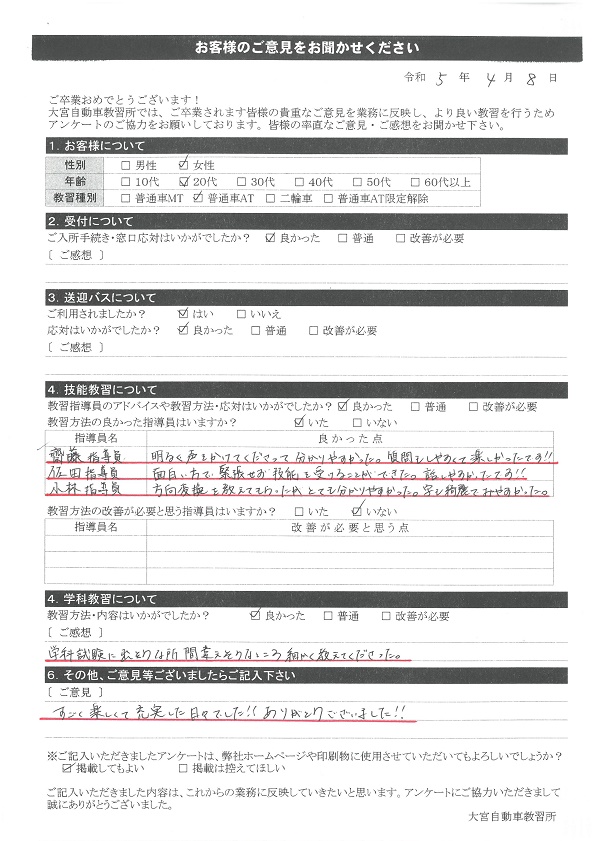 お客様のご意見をお聞かせください
令和 5 年 4 月 8 日
ご卒業おめでとうございます！
大宮自動車教習所では、ご卒業されます皆様の貴重なご意見を業務に反映し、より良い教習を行うため
アンケートのご協力をお願いしております。皆様の率直なご意見・ご感想をお聞かせ下さい。
1. お客様について
性別 □ 男性 ☑ 女性
年齢 □ 10代 ☑ 20代 □ 30代 □ 40代 □ 50代 □ 60代以上
教習種別 □ 普通車MT ☑ 普通車AT □ 二輪車 □ 普通車AT限定解除
2. 受付について
ご入所手続き・窓口応対はいかがでしたか？ ☑ 良かった □ 普通 □ 改善が必要
〔 ご感想 〕
3. 送迎バスについて
ご利用されましたか？ ☑ はい □ いいえ
応対はいかがでしたか？ ☑ 良かった □ 普通 □ 改善が必要
〔 ご感想 〕
4. 技能教習について
教習指導員のアドバイスや教習方法・応対はいかがでしたか？ ☑ 良かった □ 普通 □ 改善が必要
教習方法の良かった指導員はいますか？ ☑ いた □ いない
指導員名 良かった点
齋藤 指導員 明るく声をかけてくださって分かりやすかった。質問もしやすくて楽しかったです!!
佐田 指導員 面白い方で緊張せず技能を受けることができた。話しやすかったです!!
小林 指導員 方向変換を教えてもらったがとても分かりやすかった。字も綺麗でみやすかった。
教習方法の改善が必要と思う指導員はいますか？ □ いた ☑ いない
指導員名 改善が必要と思う点
4. 学科教習について
教習方法・内容はいかがでしたか？ ☑ 良かった □ 普通 □ 改善が必要
〔 ご感想 〕
学科試験に出そうな所 間違えそうなところ 細かく教えてくださった。
6. その他、ご意見等ございましたらご記入下さい
〔 ご意見 〕
すごく楽しくて充実した日々でした!! ありがとうございました!!
※ご記入いただきましたアンケートは、弊社ホームページや印刷物に使用させていただいてもよろしいでしょうか？
☑ 掲載してもよい □ 掲載は控えてほしい
ご記入いただきました内容は、これからの業務に反映していきたいと思います。アンケートにご協力いただきまして
誠にありがとうございました。
大宮自動車教習所